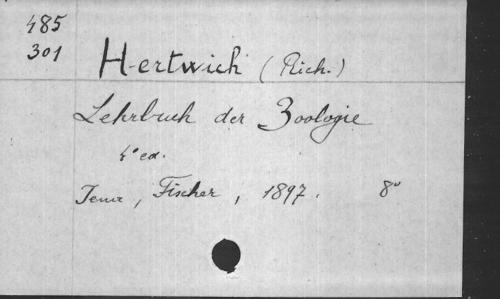 485
301
Hertwich (Rich.)
Lehrbuch der Zoologie
4° ed.
Jena, Fischer, 1897. 8°